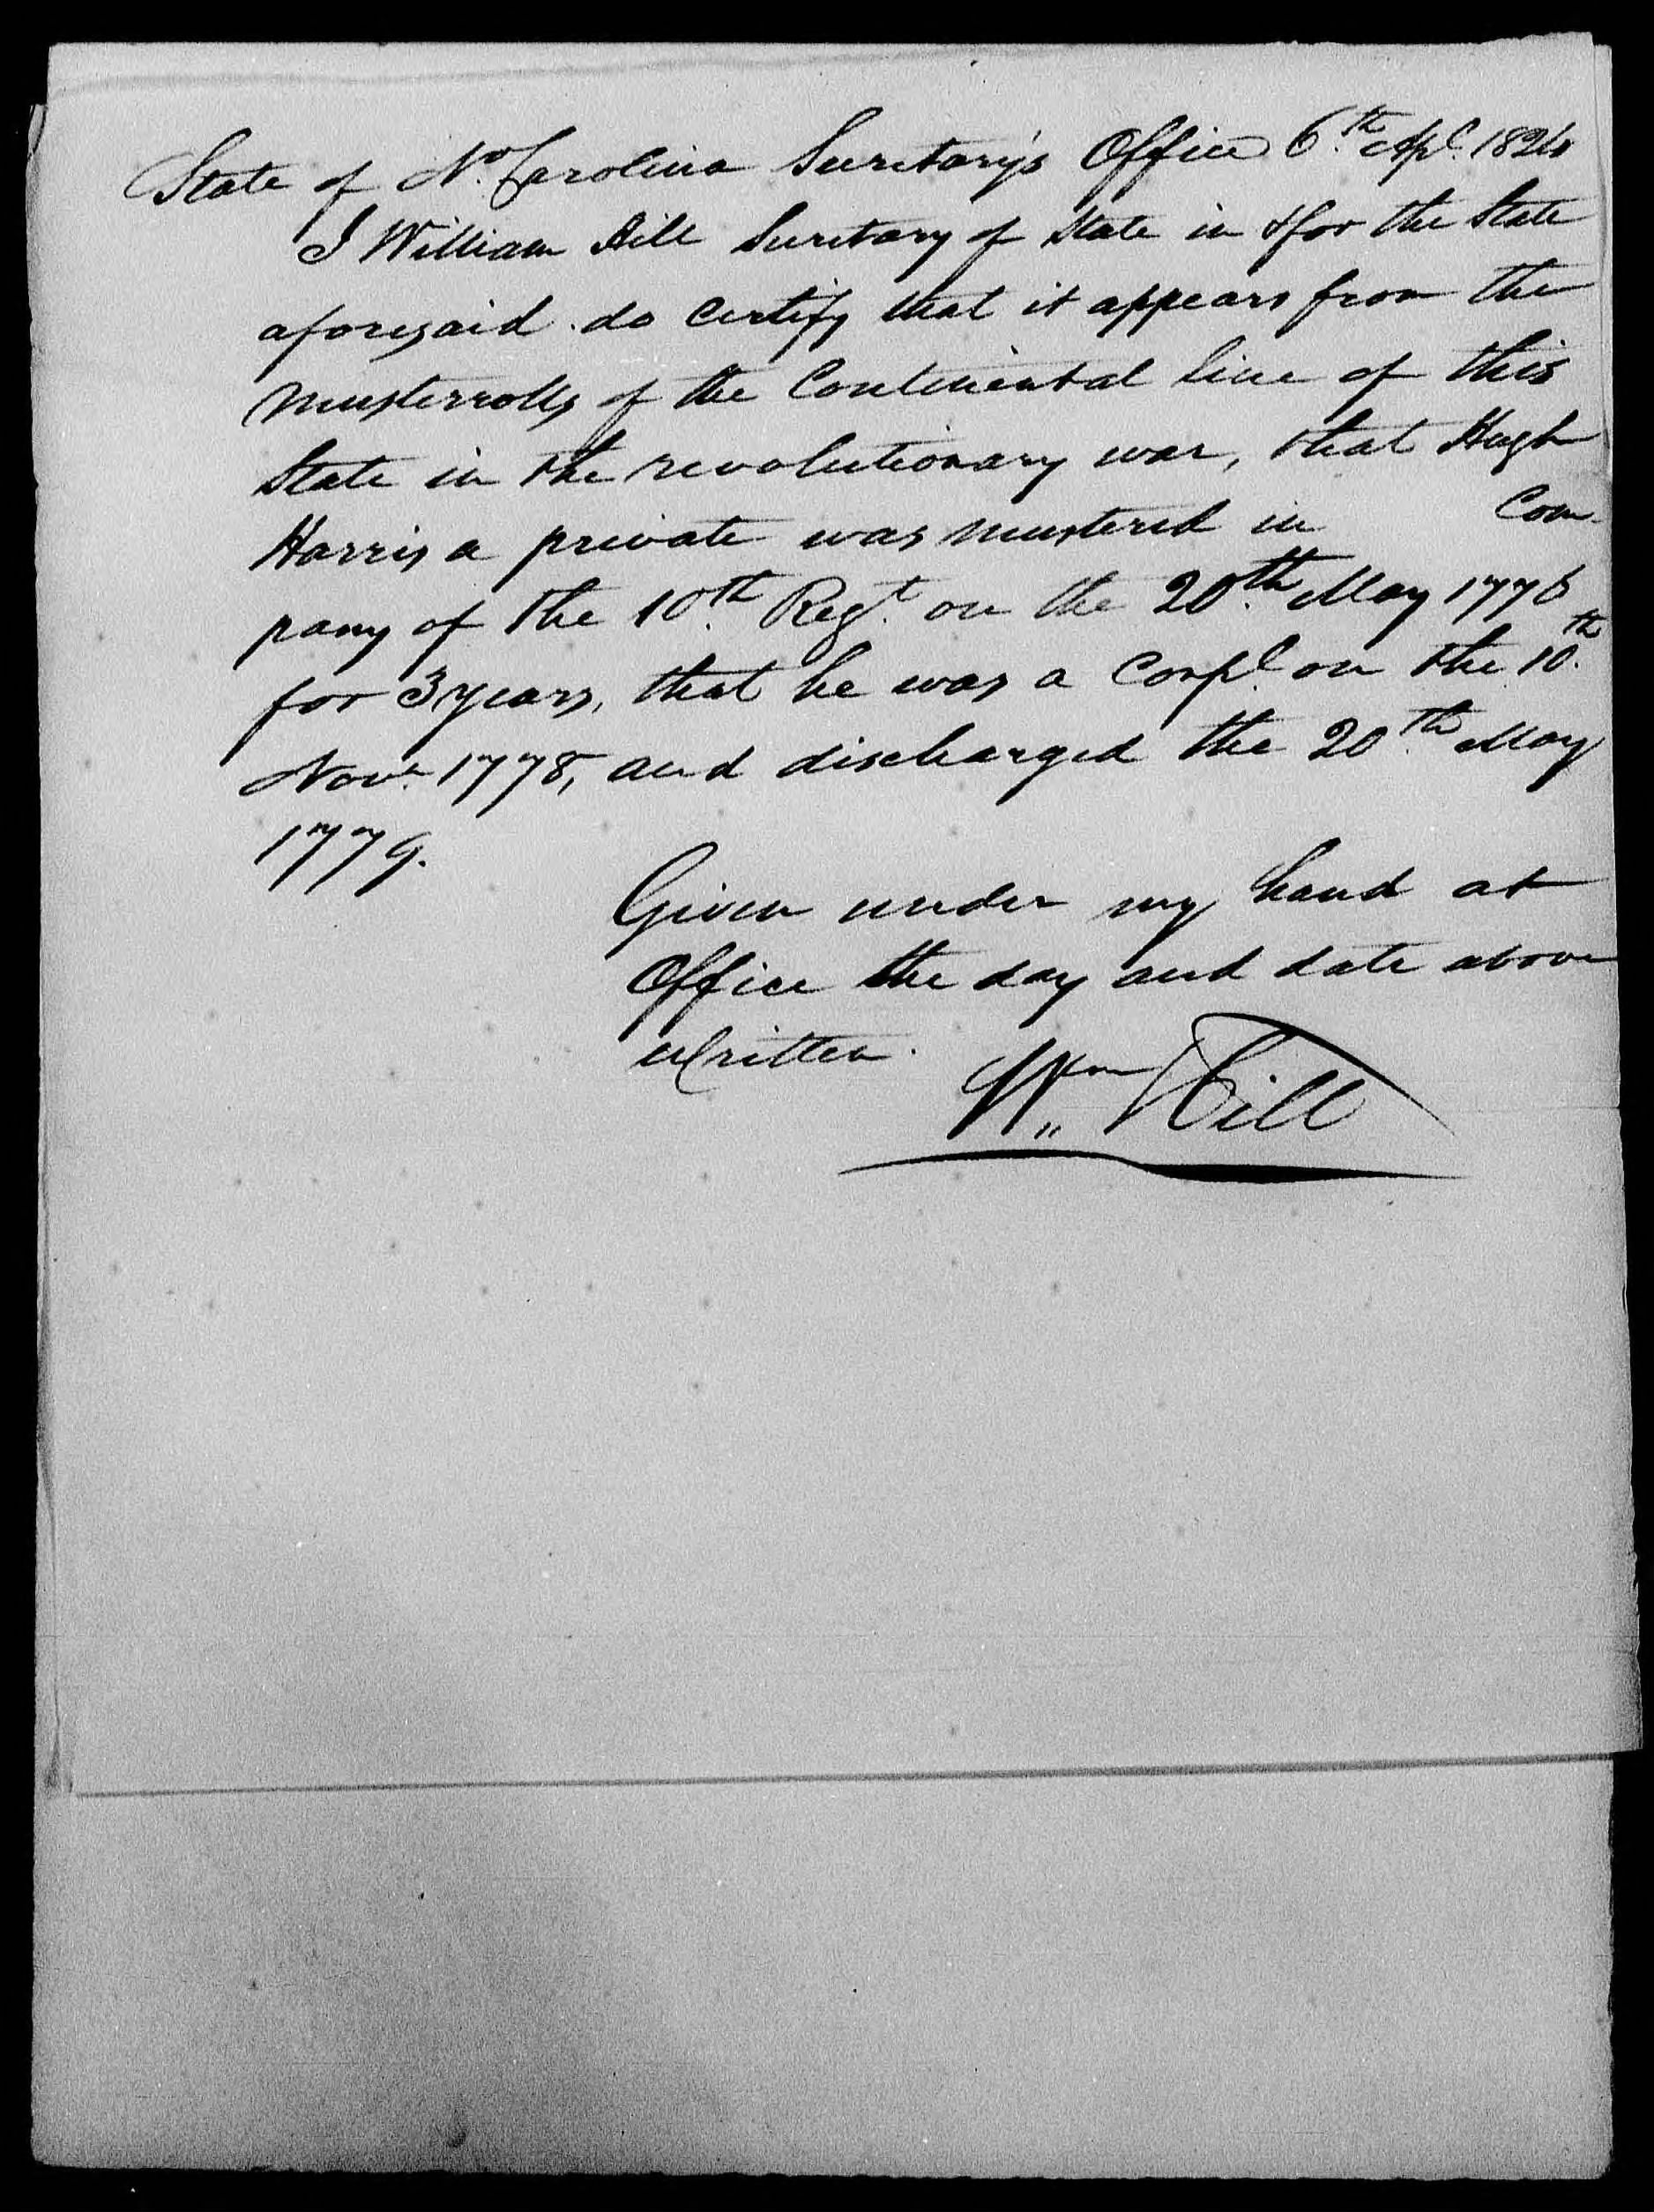 State of No. Carolina Secretary's Office 6.th Apl. 1824
I William Hill Secretary of State in & for the State
aforesaid do certify that it appears from the
musterrolls of the Continental line of this
State in the revolutionary war, that Hugh
Harris a private was mustered in Com-
pany of the 10.th Regt. on the 20.th May 1776
for 3 years, that he was a Corpl. on the 10.th
Novr. 1778, and discharged the 20.th May
1779.
Given under my hand at
Office the day and date above
written.
Wm Hill